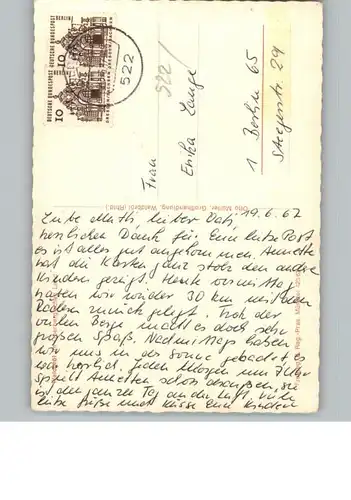 DEUTSCHE BUNDESPOST BERLIN
DEUTSCHE BUNDESPOST BERLIN
10
10
522
522/
Frau
Erika Lange
1 Berlin 65
Steegerstr. 29
Otto Müller, Großhandlung, Waldbröl (Rhld.)
Liebe Mutti, lieber Vati, 19.6.67
herzlichen Dank für Eure liebe Post
es ist alles gut angekommen. Annette
hat die Karten ganz stolz den andern
Kindern gezeigt. Heute vormittag
haben wir wieder 30 km mit den
Rädern zurück gelegt. Trotz der
vielen Berge macht es doch sehr
großen Spaß. Nachmittags haben
wir uns in der Sonne gebadet es
war herrlich. Jeden Morgen um 7 Uhr
spielt Annette schon draußen, sie
ist den ganzen Tag an der Luft. Viele
liebe Grüße und Küsse Eure Kinder